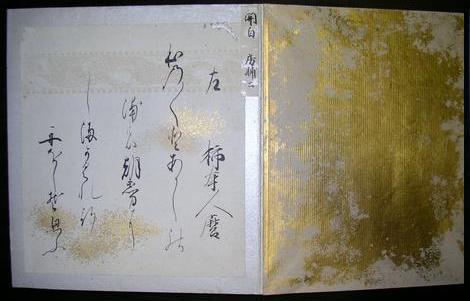 関白 房輔公
左 柿本人麿
ほの〱とあかしの
浦の朝霧に
しまかくれ行
舟をしそ思ふ